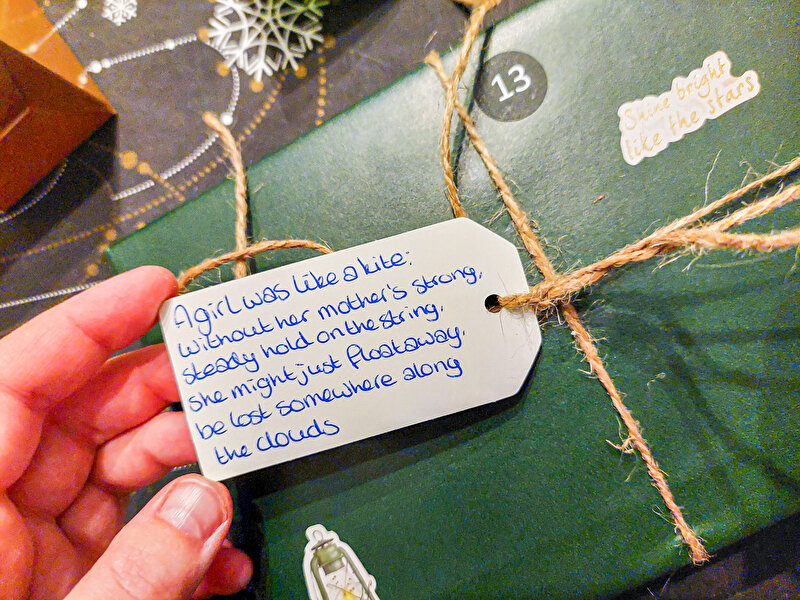 13
Shine bright
like the stars
A girl was like a kite:
without her mother's strong,
steady hold on the string,
she might just float away,
be lost somewhere along
the clouds